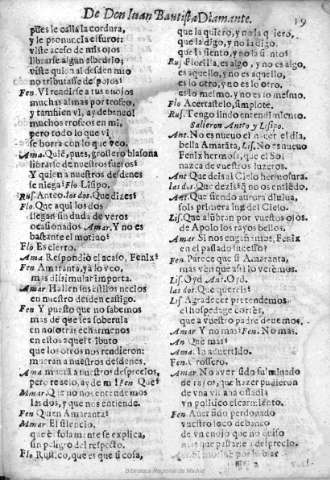 De Don Iuan Bautista Diamante. 19
pues le calla la cordura,
y le pronuncia el furor:
viste aceso de mis ojos
librarse algun albedrio;
viste quien al desden mio
no tributasse despojos?
Fen. Vi rendirse a tus enojos
muchas almas por trofeo,
y tambien vi, q̃ debaneo!
muchos trofeos en mi,
pero todo lo que vi
se borra con lo que veo.
Ama. Quiẽ, pues, grossero blasona
librarse de nuestros fueros?
Y quien a nuestros desdenes
se niega? Flo. Lisipo.
Rus. Anteo. las dos. Que dizes?
Flo. Que aqui los dos
llegan sin duda de veros
ocasionados. Amar. Y no es
bastante el motiuo?
Flo. Es cierto.
Ama. Respondiò el acaso, Fenix?
Fen. Amaranta, ya lo veo,
mas disimular importa.
Amar. Hallen sus altiuos necios
en nuestro desden castigo.
Fen. Y puesto que no sabemos
mas de que sea soberuia
en nosotras escusemos
en estos aquel tributo
que los otros nos rendieron:
mueran a nuestros desdenes.
Ama. muera a nuestros desprecios,
pero rezelo, ay de mi! Fen. Que?
Amar. Que no nos entendemos
las dos, y que nos entiende.
Fen. Quien Amaranta?
Amar. El silencio,
que es solamente se explica,
sin peligro del respeto.
Flo. Rustico, que es que si cosa,
que la quiero, y no la quiero,
que la digo, y no la digo,
que la siento, y no la siento?
Rus. Florilla, es algo, y no es algo,
es aquello, y no es aquello,
es lo otro, y no es lo otro,
es lo mesmo, y no es lo mesmo.
Flo. Acertastelo, simplote.
Rus. Tengo lindo entendimiento.
Salieron Anteo y Lisipo.
Ant. No es nueuo el nacer el dia,
bella Amaranta, Lis. No es nueuo
Fenix hermosa, que el Sol
nazca de vuestros luzeros.
Ant. Que dezis al Cielo hermosura.
las dos. Que dezis? q̃ no os entiẽdo.
Ant. Que siendo aurora diuina,
sois primera luz del Cielo.
Lis. Que alumbran por vuestros ojos
de Apolo los rayos bellos.
Amar. Si nos engañamos, Fenix
en el passado sucesso?
Fen. Parece que si Amaranta,
mas ven que assi lo verèmos.
Lis. Oyd. Ant. Oyd.
las dos. Que quereis?
Lis. Agradecer pretendemos
el hospedage cortès,
que a vuestro padre deuemos.
Amar. Y no mas? Fen. No mas.
An. Que mas?
Ama. la aduertillo.
Fen. Grossero.
Amar. No auer sido fulminado
de rayos, que hazer pudieron
de vna vitania ossadia
vn politico escarmiento.
Fen. Auer sido perdonado
vuestro loco debaneo
de vn enojo que no quiso
mas que passarse a desprecio.
Biblioteca Regional de Madrid